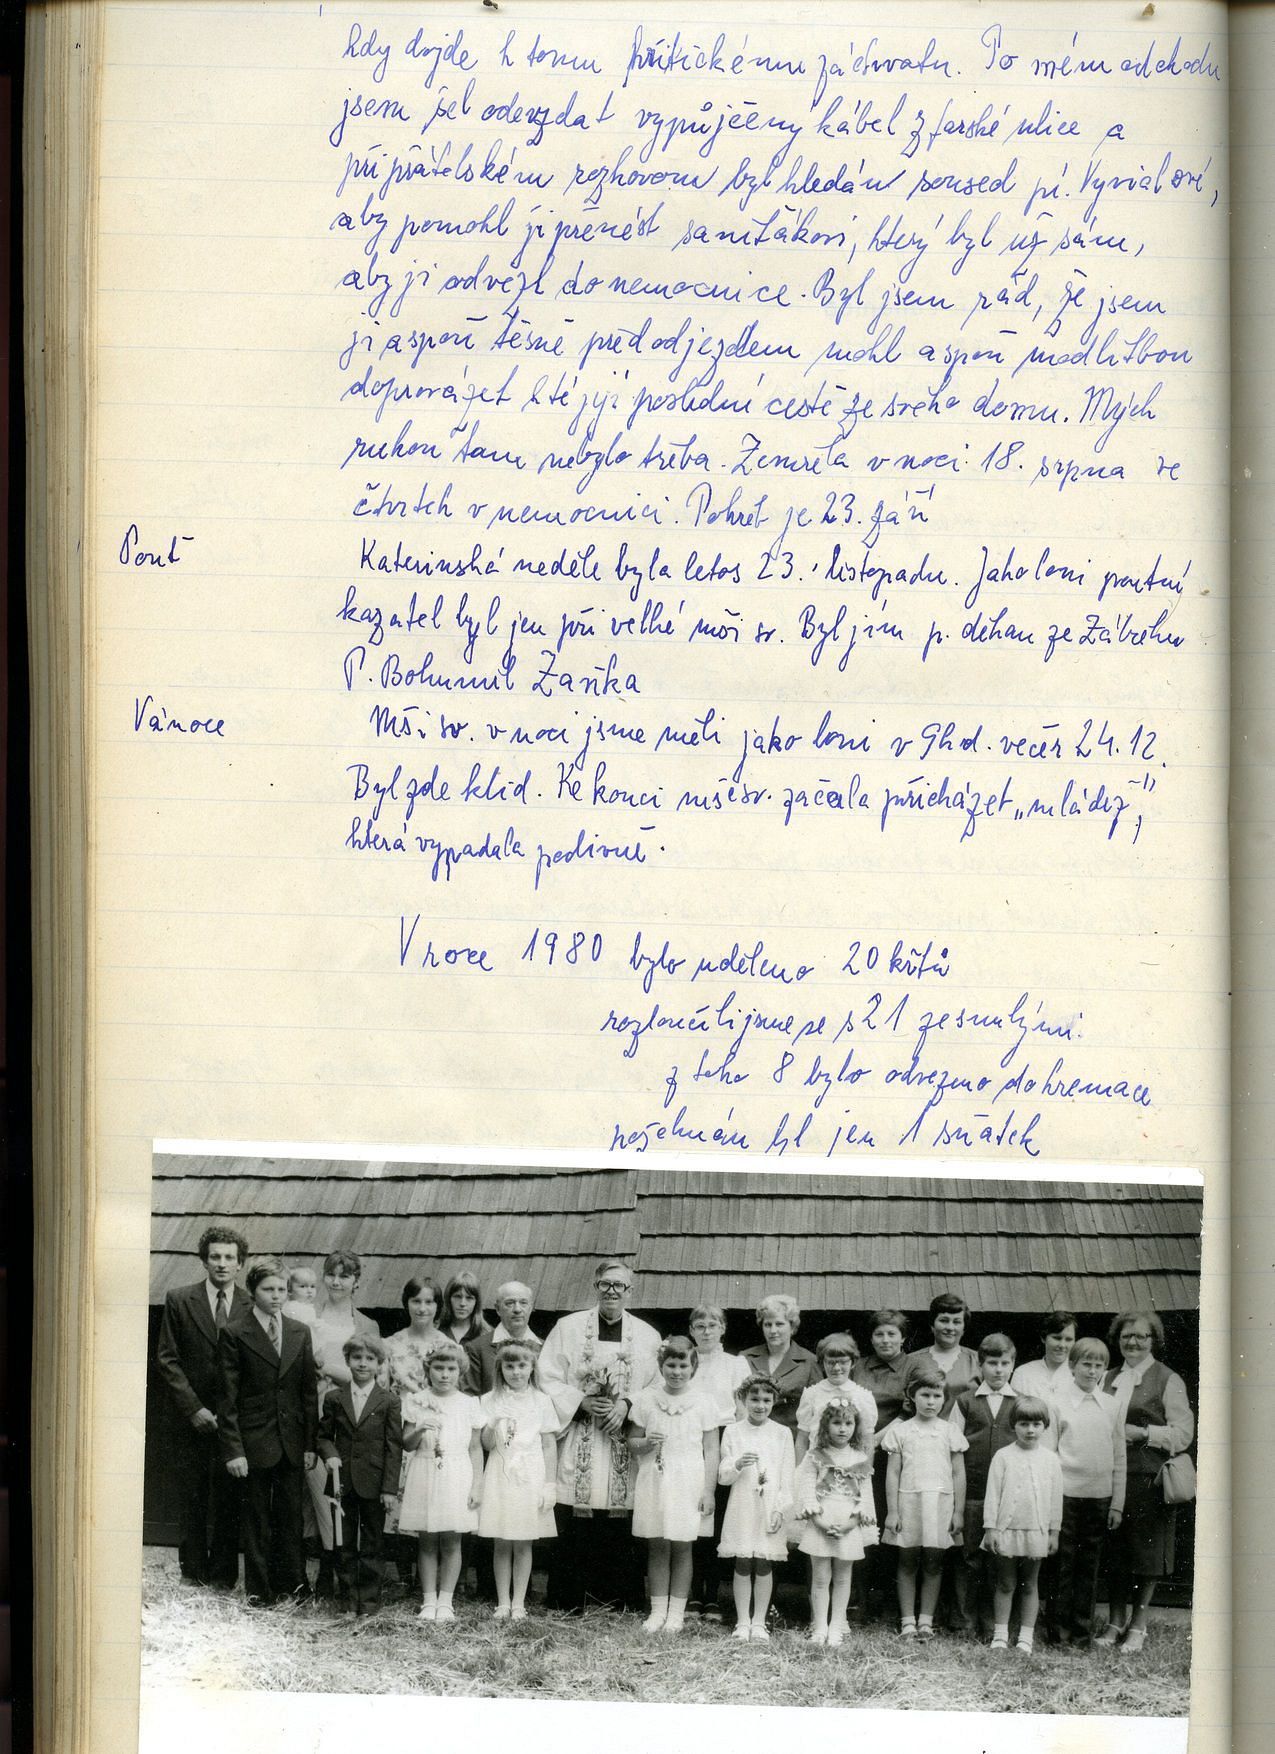 kdy dojde k tomu kritickému záchvatu. Po mém odchodu
jsem šel odevzdat vypůjčený kábel z farské ulice a
při přátelském rozhovoru byl hledán soused pí. Vyvialové,
aby pomohl ji přenést saniťákovi, který byl už sám,
aby ji odvezl do nemocnice. Byl jsem rád, že jsem
ji aspoň těsně před odjezdem mohl aspoň modlitbou
doprovázet k té její poslední cestě ze svého domu. Mých
rukou tam nebylo třeba. Zemřela v noci 18. srpna ve
čtvrtek v nemocnici. Pohřeb je 23. září
Pouť
Kateřinská neděle byla letos 23. listopadu. Jako loni poutní
kazatel byl jen při velké mši sv. Byl jím p. děkan ze Zábřehu
P. Bohumil Zavřka
Vánoce
Mši sv. v noci jsme měli jako loni v 9 hod. večer 24.12.
Byl zde klid. Ke konci mše sv. začala přicházet „mládež“,
která vypadala podivně.
V roce 1980 bylo uděleno 20 křtů
rozloučili jsme se s 21 zesnulými.
z toho 8 bylo odvezeno do kremace
požehnán byl jen 1 sňatek